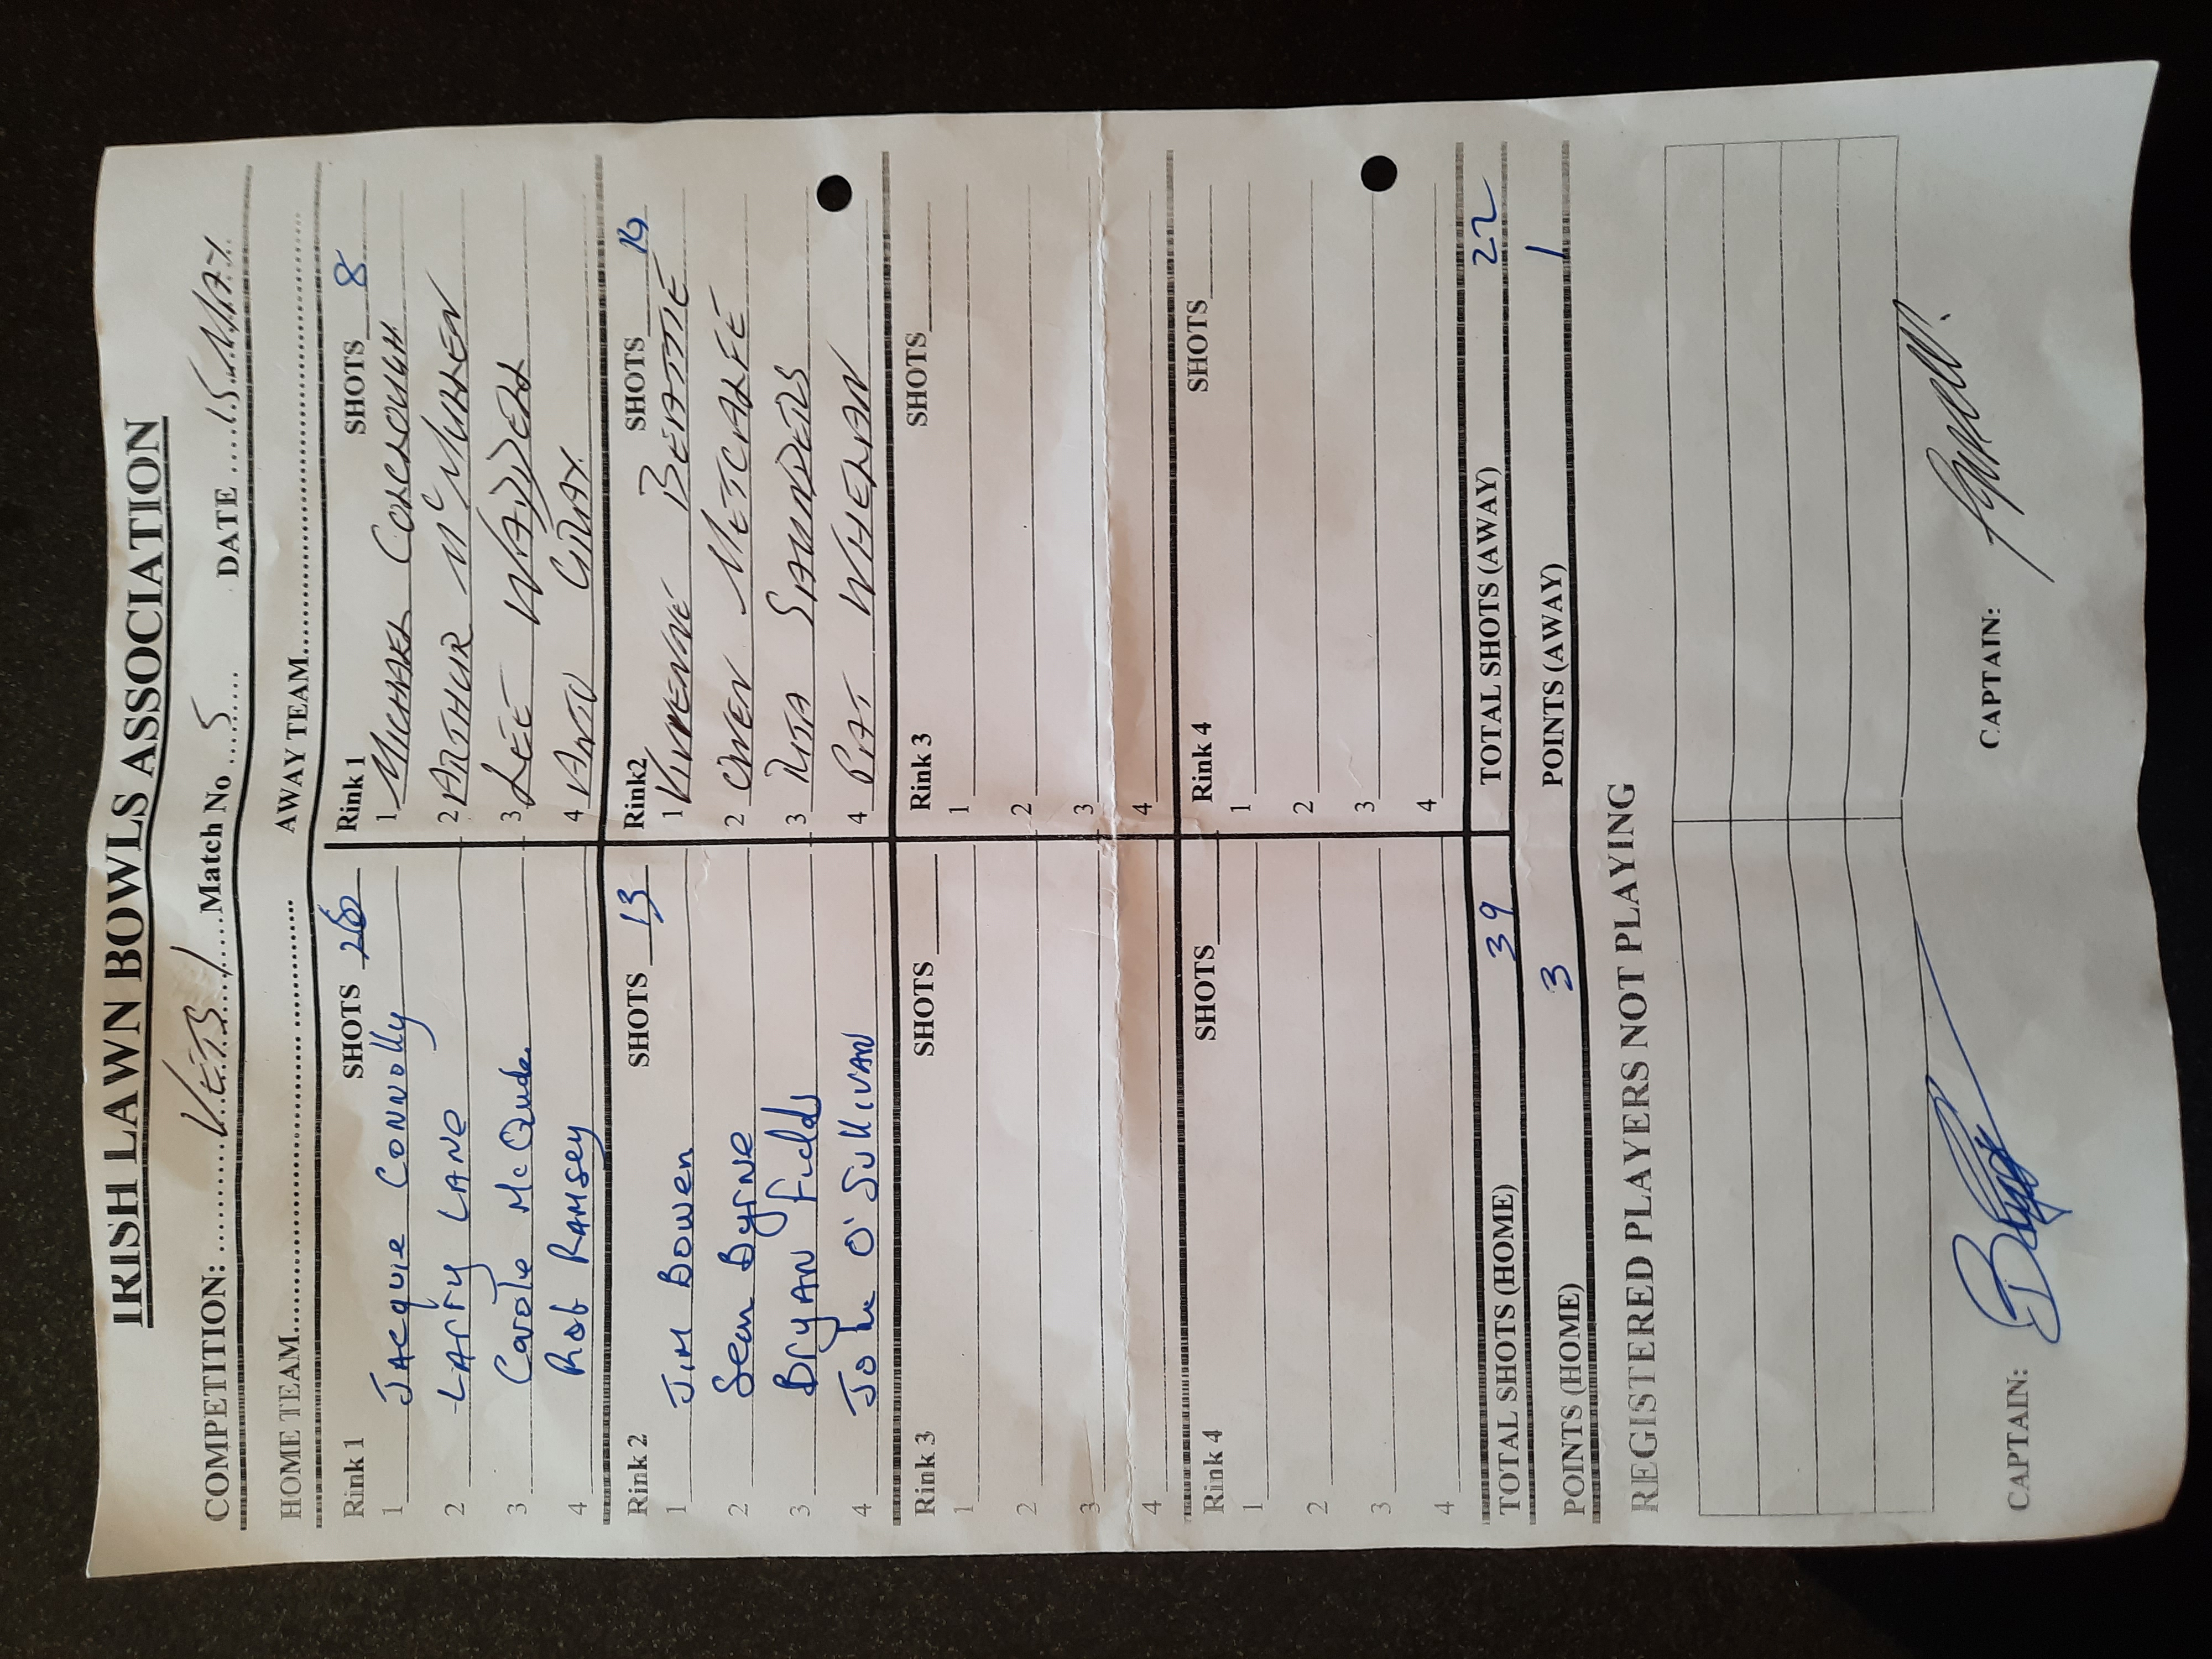 IRISH LAWN BOWLS ASSOCIATION
COMPETITION: VETS 1 Match No 5 DATE 15 MAY.
HOME TEAM AWAY TEAM
Rink 1 SHOTS Rink 1 SHOTS 8
1 JACQUIE CONNOLLY 1 MICHAEL COLCLOUGH
2 LARRY LANE 2 ARTHUR McMULLEN
3 Carole McQuade. 3 LEE WADDELL
4 Rob RAMSEY 4 ANTO GRAY.
Rink 2 SHOTS 13 Rink2 SHOTS
1 JIM BOWEN 1 VIVIENNE BEATTIE
2 Sean Byrne 2 OWEN METCALFE
3 BryAN Fields 3 RITA SAUNDERS
4 John O'SULLIVAN 4 PAT WHELAN
Rink 3 SHOTS Rink 3 SHOTS
1 1
2 2
3 3
4 4
Rink 4 SHOTS Rink 4 SHOTS
1 1
2 2
3 3
4 4
TOTAL SHOTS (HOME) 39 TOTAL SHOTS (AWAY) 22
POINTS (HOME) 3 POINTS (AWAY) 1
REGISTERED PLAYERS NOT PLAYING
CAPTAIN: CAPTAIN: